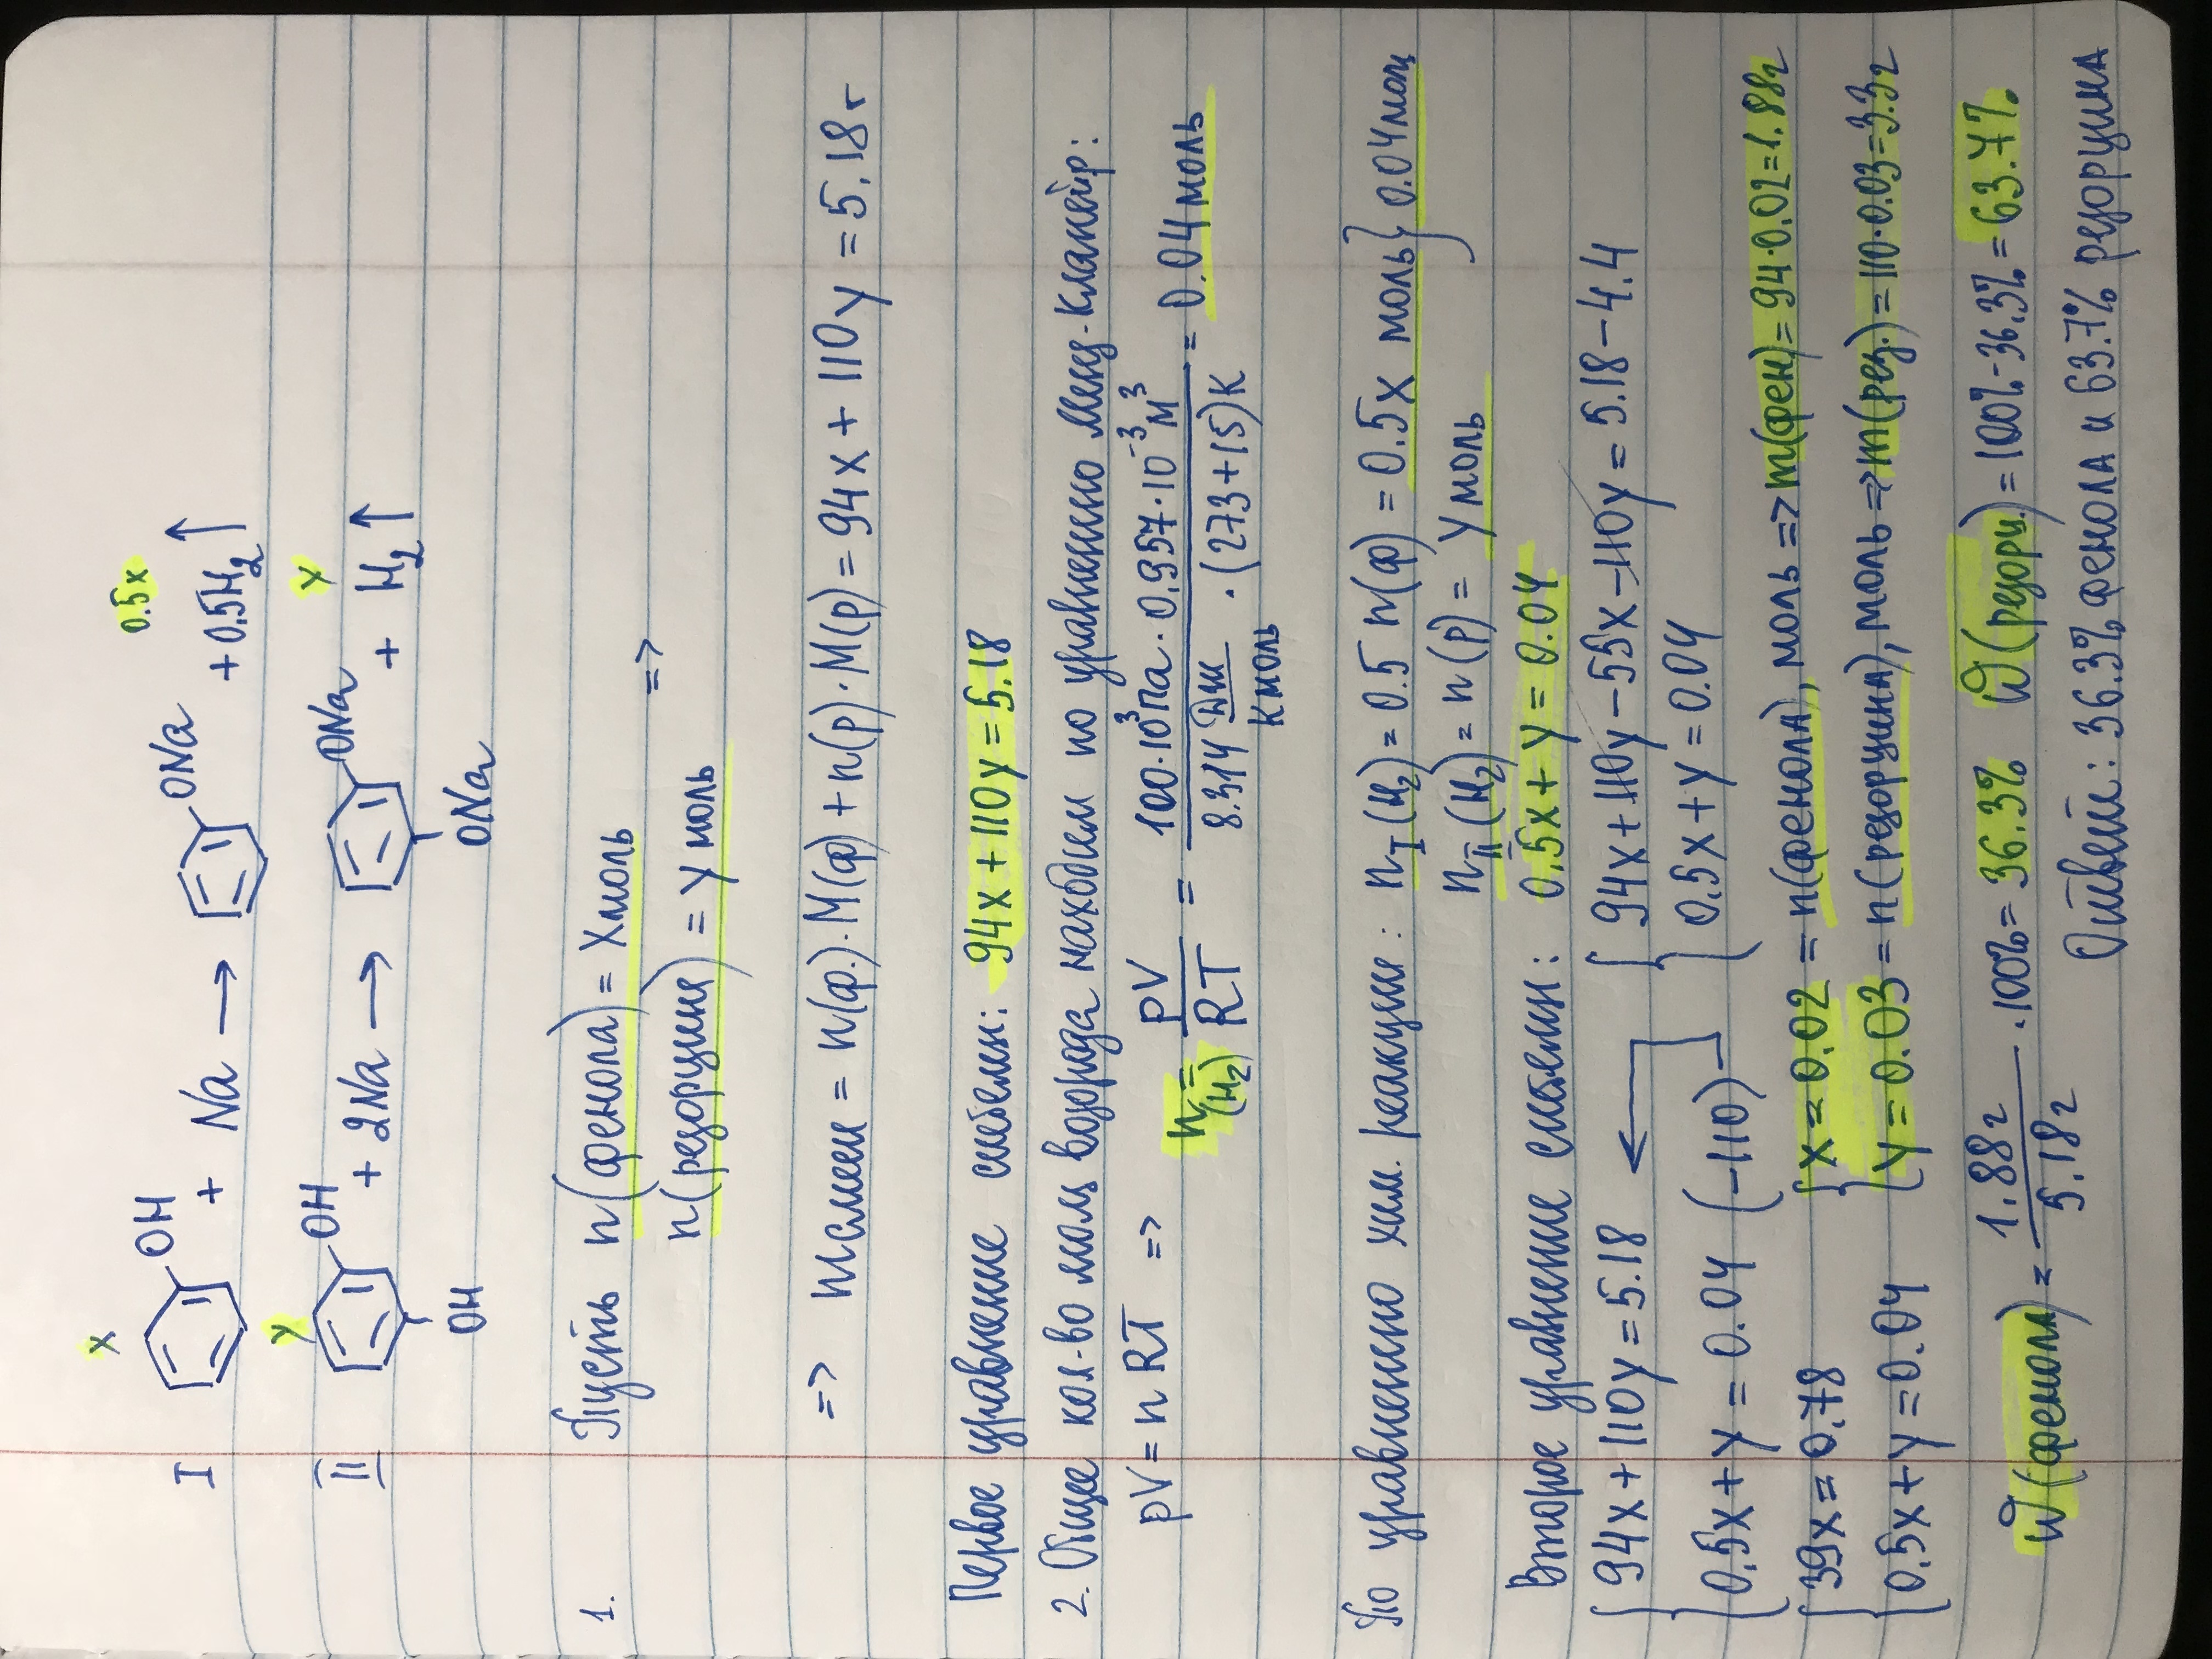 x 0.5x
I OH + Na → ONa + 0.5H₂↑
y y
II OH + 2Na → ONa + H₂↑
OH ONa
1. Пусть n(фенола) = x моль
n(резорцина) = y моль =>
=> mсмеси = n(ф.)·M(ф) + n(р)·M(р) = 94x + 110y = 5,18 г
Первое уравнение системы: 94x + 110y = 5.18
2. Общее кол-во моль водорода находим по уравнению Менд-Клапейр:
pV = nRT => n(H₂) = pV/RT = 100·10³Па·0,957·10⁻³м³ / 8.314 Дж/Kмоль · (273+15)K = 0.04 моль
По уравнению хим. реакции: n_I(H₂) = 0.5 n(ф) = 0.5x моль } 0.04 моль
n_II(H₂) = n(р) = y моль
Второе уравнение системы: 0,5x + y = 0.04
{ 94x + 110y = 5.18 ← { 94x + 110y - 55x - 110y = 5.18 - 4.4
{ 0,5x + y = 0.04 (-110) { 0.5x + y = 0.04
{ 39x = 0.78 { x = 0.02 = n(фенола), моль => m(фен) = 94·0.02 = 1.88г
{ 0.5x + y = 0.04 { y = 0.03 = n(резорцина), моль => m(рез.) = 110·0.03 = 3.3г
W(фенола) = 1.88г / 5.18г · 100% = 36.3% W(резорц.) = 100% - 36.3% = 63.7%
Ответ: 36.3% фенола и 63.7% резорцина